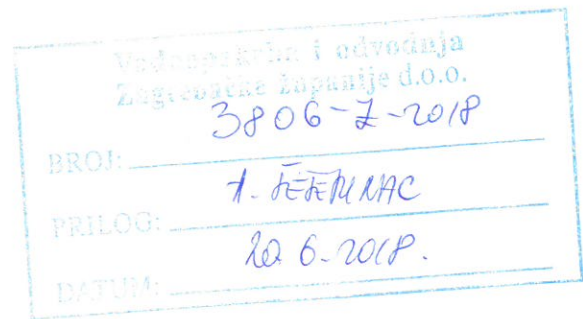 Vodoopskrba i odvodnja
Zagrebačke županije d.o.o.
BROJ: 3806-Z-2018
PRILOG: 1.
DATUM: 20 6. 2018.